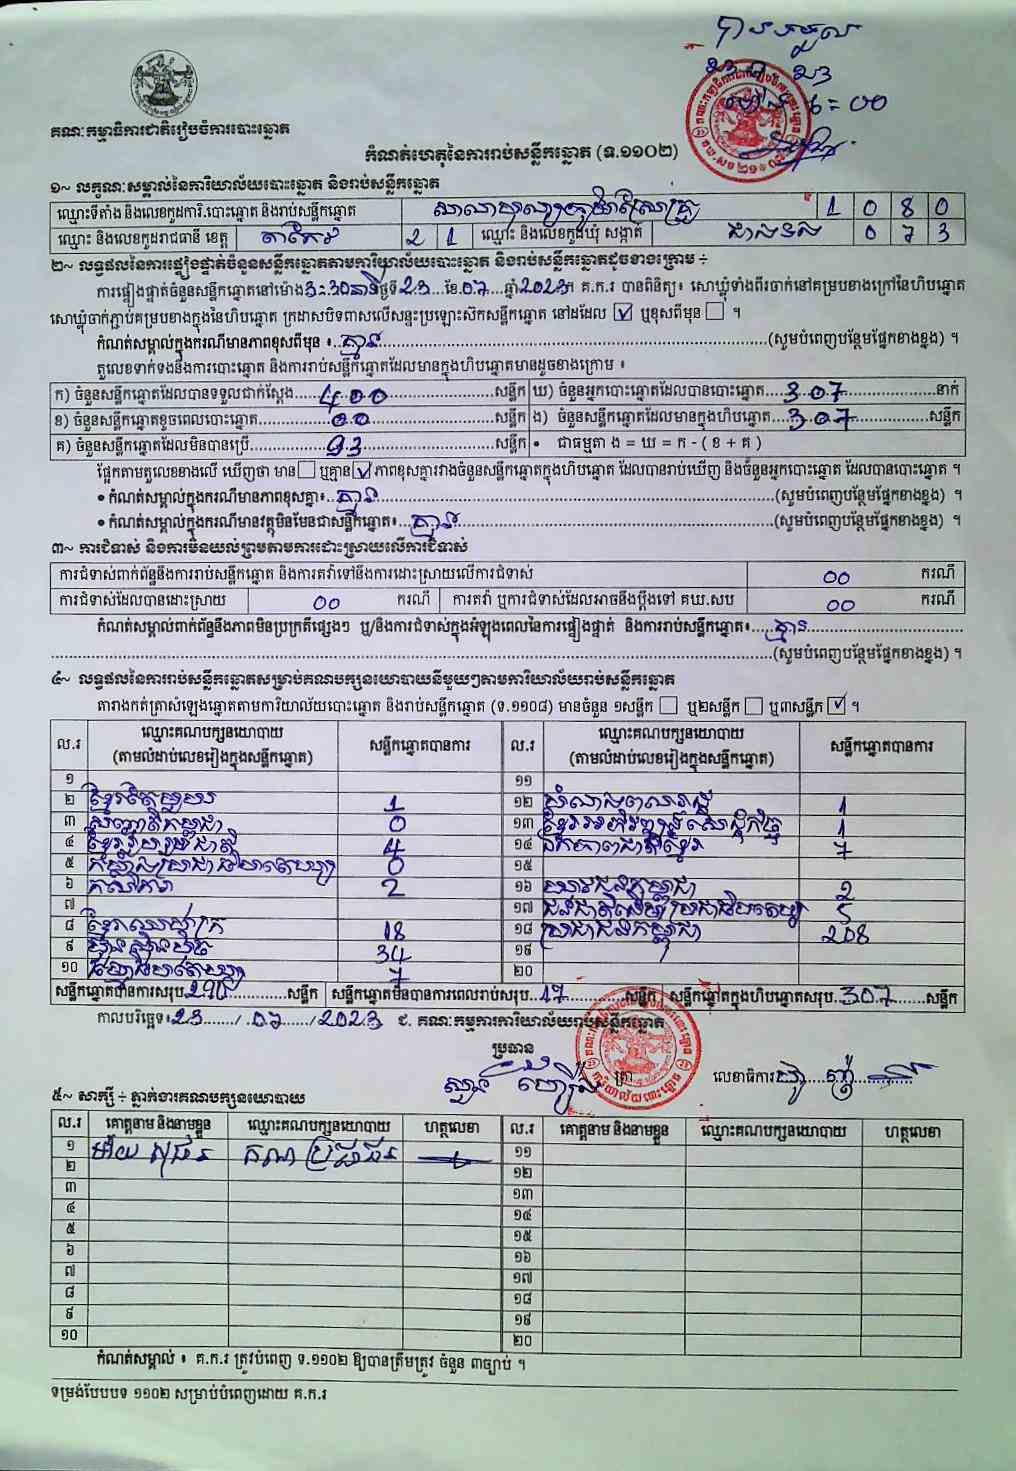 បានទទួល
គណៈកម្មាធិការជាតិរៀបចំការបោះឆ្នោត
កំណត់ហេតុនៃការរាប់សន្លឹកឆ្នោត (ទ.១១០២)
១~ លក្ខណៈសម្គាល់នៃការិយាល័យបោះឆ្នោត និងរាប់សន្លឹកឆ្នោត
ឈ្មោះទីតាំង និងលេខកូដការិ.បោះឆ្នោត និងរាប់សន្លឹកឆ្នោត 1 0 8 0
ឈ្មោះ និងលេខកូដរាជធានី ខេត្ត តាកែវ 2 1 ឈ្មោះ និងលេខកូដឃុំ សង្កាត់ 0 7 3
២~ លទ្ធផលនៃការផ្ទៀងផ្ទាត់ចំនួនសន្លឹកឆ្នោតតាមការិយាល័យបោះឆ្នោត និងរាប់សន្លឹកឆ្នោតដូចខាងក្រោម ÷
ការផ្ទៀងផ្ទាត់ចំនួនសន្លឹកឆ្នោតនៅម៉ោង3:30នាទីថ្ងៃទី23...ខែ.07...ឆ្នាំ2023។ គ.ក.រ បានពិនិត្យ៖ សោឃ្លុំទាំងពីរចាក់នៅគម្របខាងក្រៅនៃហិបឆ្នោត
សោឃ្លុំចាក់ភ្ជាប់គម្របខាងក្នុងនៃហិបឆ្នោត ក្រដាសបិទពាសលើសន្ទះប្រឡោះសឹកសន្លឹកឆ្នោត នៅដដែល ☑ ឬខុសពីមុន ☐ ។
កំណត់សម្គាល់ក្នុងករណីមានភាពខុសពីមុន ៖ គ្មាន (សូមបំពេញបន្ថែមផ្នែកខាងខ្នង) ។
តួលេខទាក់ទងនឹងការបោះឆ្នោត និងការរាប់សន្លឹកឆ្នោតដែលមានក្នុងហិបឆ្នោតមានដូចខាងក្រោម ៖
ក) ចំនួនសន្លឹកឆ្នោតដែលបានទទួលជាក់ស្តែង 400 សន្លឹក ឃ) ចំនួនអ្នកបោះឆ្នោតដែលបានបោះឆ្នោត 307 នាក់
ខ) ចំនួនសន្លឹកឆ្នោតខូចពេលបោះឆ្នោត 00 សន្លឹក ង) ចំនួនសន្លឹកឆ្នោតដែលមានក្នុងហិបឆ្នោត 307 សន្លឹក
គ) ចំនួនសន្លឹកឆ្នោតដែលមិនបានប្រើ 93 សន្លឹក • ជាធម្មតា ង = ឃ = ក - ( ខ + គ )
ផ្អែកតាមតួលេខខាងលើ ឃើញថា មាន ☐ ឬគ្មាន ☑ ភាពខុសគ្នារវាងចំនួនសន្លឹកឆ្នោតក្នុងហិបឆ្នោត ដែលបានរាប់ឃើញ និងចំនួនអ្នកបោះឆ្នោត ដែលបានបោះឆ្នោត ។
• កំណត់សម្គាល់ក្នុងករណីមានភាពខុសគ្នា៖ គ្មាន (សូមបំពេញបន្ថែមផ្នែកខាងខ្នង) ។
• កំណត់សម្គាល់ក្នុងករណីមានវត្ថុមិនមែនជាសន្លឹកឆ្នោត៖ គ្មាន (សូមបំពេញបន្ថែមផ្នែកខាងខ្នង) ។
៣~ ការជំទាស់ និងការមិនយល់ព្រមតាមការដោះស្រាយលើការជំទាស់
ការជំទាស់ពាក់ព័ន្ធនឹងការរាប់សន្លឹកឆ្នោត និងការតវ៉ាទៅនឹងការដោះស្រាយលើការជំទាស់ 00 ករណី
ការជំទាស់ដែលបានដោះស្រាយ 00 ករណី ការតវ៉ា ឬការជំទាស់ដែលអាចនឹងប្តឹងទៅ គឃ.សប 00 ករណី
កំណត់សម្គាល់ពាក់ព័ន្ធនឹងភាពមិនប្រក្រតីផ្សេងៗ ឬ/និងការជំទាស់ក្នុងអំឡុងពេលនៃការផ្ទៀងផ្ទាត់ និងការរាប់សន្លឹកឆ្នោត៖ គ្មាន
(សូមបំពេញបន្ថែមផ្នែកខាងខ្នង) ។
៤~ លទ្ធផលនៃការរាប់សន្លឹកឆ្នោតសម្រាប់គណបក្សនយោបាយនីមួយៗតាមការិយាល័យរាប់សន្លឹកឆ្នោត
តារាងកត់ត្រាសំឡេងឆ្នោតតាមការិយាល័យបោះឆ្នោត និងរាប់សន្លឹកឆ្នោត (ទ.១១០៨) មានចំនួន ១សន្លឹក ☐ ឬ២សន្លឹក ☐ ឬ៣សន្លឹក ☑ ។
ល.រ ឈ្មោះគណបក្សនយោបាយ (តាមលំដាប់លេខរៀងក្នុងសន្លឹកឆ្នោត) សន្លឹកឆ្នោតបានការ ល.រ ឈ្មោះគណបក្សនយោបាយ (តាមលំដាប់លេខរៀងក្នុងសន្លឹកឆ្នោត) សន្លឹកឆ្នោតបានការ
១ ១១
២ 1 ១២ 1
៣ 0 ១៣ 1
៤ ខ្មែររួបរួមជាតិ 4 ១៤ ឯកភាពជាតិខ្មែរ 7
៥ 0 ១៥
៦ កសិករ 2 ១៦ យុវជនកម្ពុជា 2
៧ ១៧ 5
៨ 18 ១៨ ប្រជាជនកម្ពុជា 208
៩ ហ៊្វុនស៊ិនប៉ិច 34 ១៩
១០ 7 ២០
សន្លឹកឆ្នោតបានការសរុប 290 សន្លឹក សន្លឹកឆ្នោតមិនបានការពេលរាប់សរុប 17 សន្លឹក សន្លឹកឆ្នោតក្នុងហិបឆ្នោតសរុប 307 សន្លឹក
កាលបរិច្ឆេទ៖ 23 / 07 / 2023 ជ. គណៈកម្មការការិយាល័យរាប់សន្លឹកឆ្នោត
ប្រធាន
ត្រា លេខាធិការ
៥~ សាក្សី ÷ ភ្នាក់ងារគណបក្សនយោបាយ
ល.រ គោត្តនាម និងនាមខ្លួន ឈ្មោះគណបក្សនយោបាយ ហត្ថលេខា ល.រ គោត្តនាម និងនាមខ្លួន ឈ្មោះគណបក្សនយោបាយ ហត្ថលេខា
១ ១១
២ ១២
៣ ១៣
៤ ១៤
៥ ១៥
៦ ១៦
៧ ១៧
៨ ១៨
៩ ១៩
១០ ២០
កំណត់សម្គាល់ ៖ គ.ក.រ ត្រូវបំពេញ ទ.១១០២ ឱ្យបានត្រឹមត្រូវ ចំនួន ៣ច្បាប់ ។
ទម្រង់បែបបទ ១១០២ សម្រាប់បំពេញដោយ គ.ក.រ